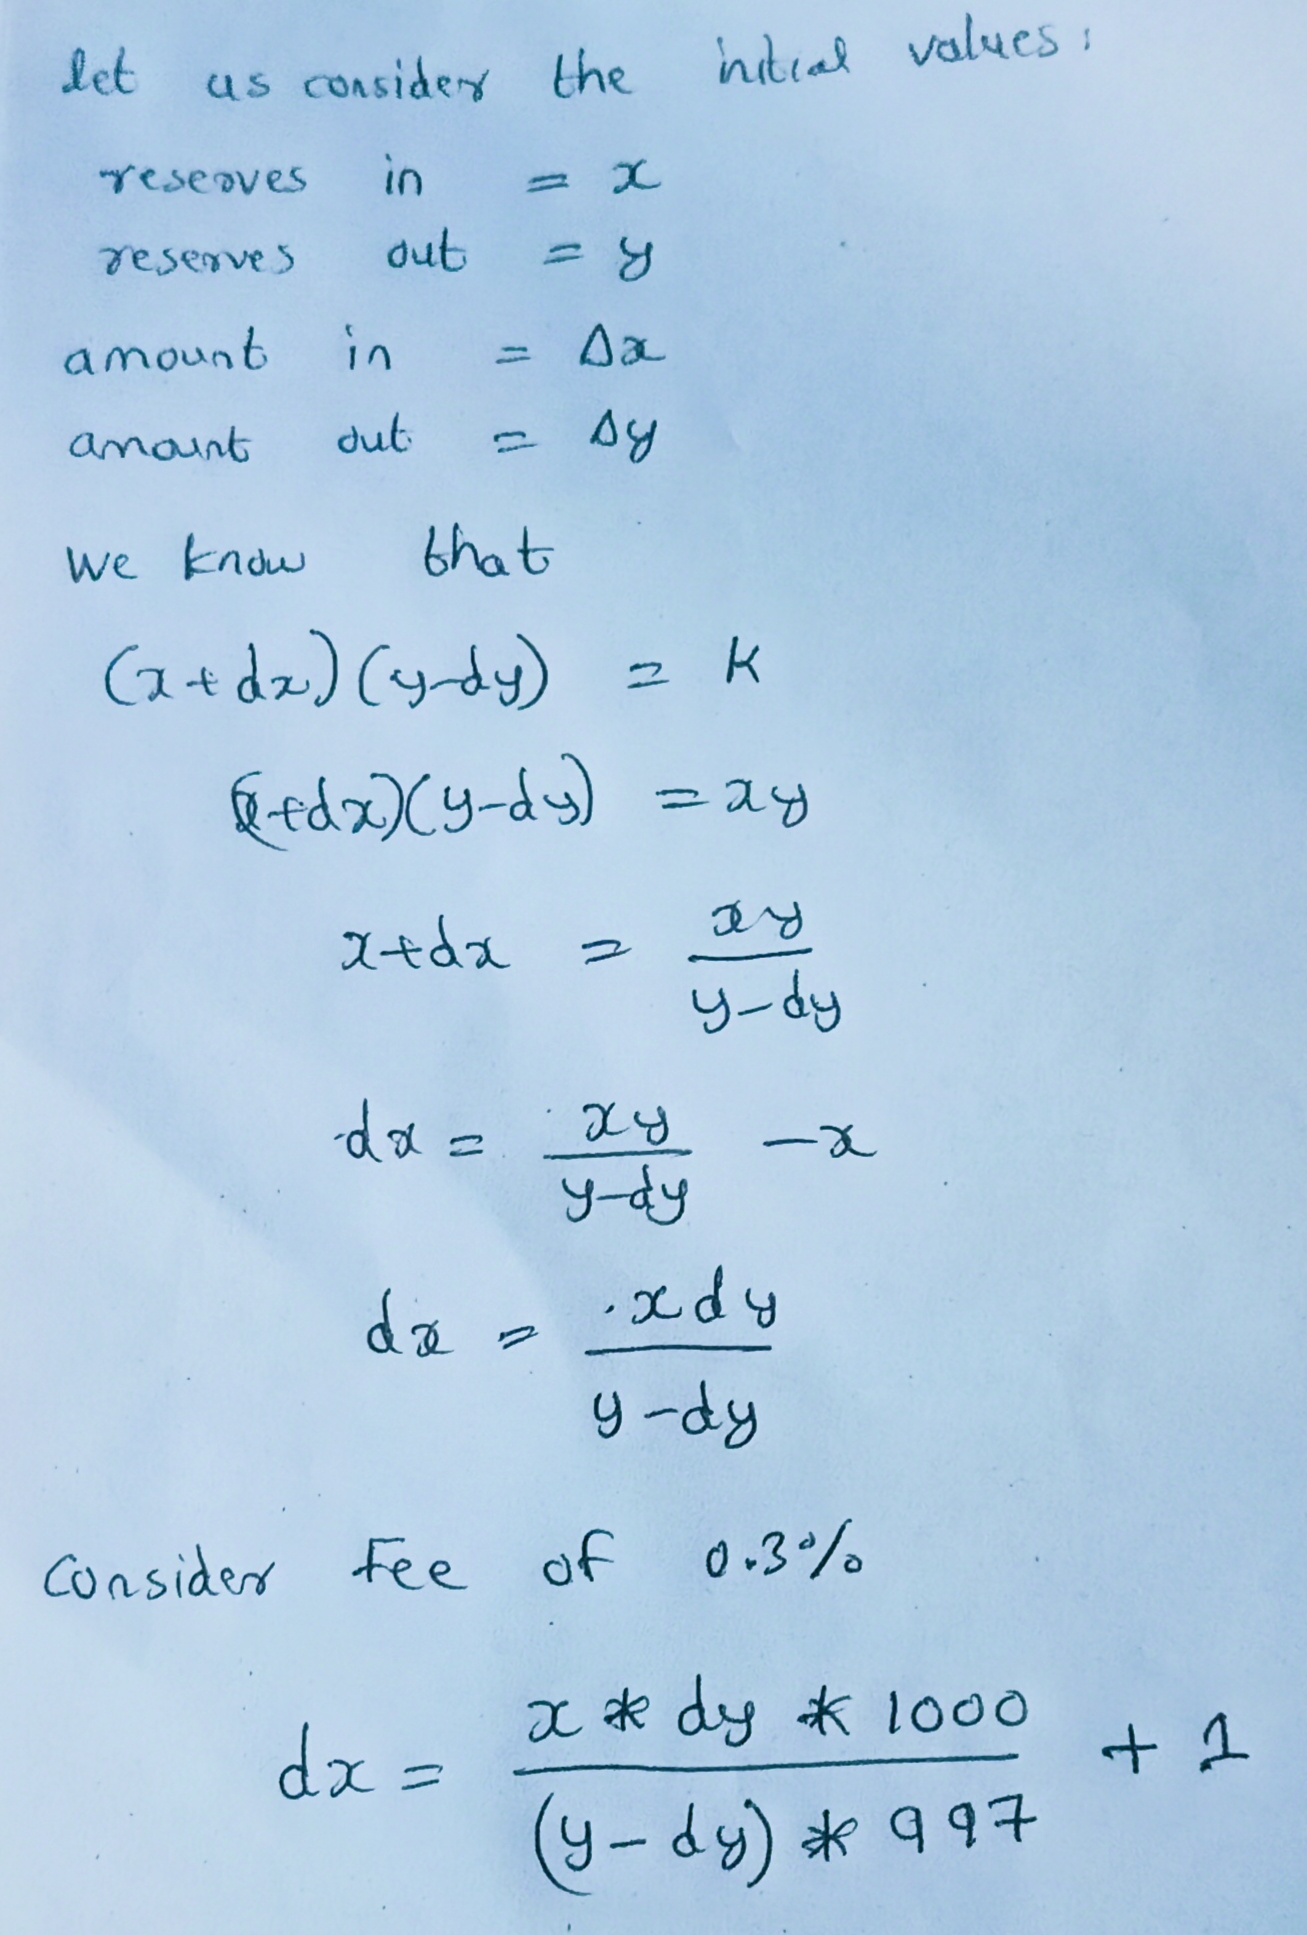 let us consider the initial values:
reserves in = x
reserves out = y
amount in = Δx
amount out = Δy
we know that
(x+dx)(y-dy) = K
(x+dx)(y-dy) = xy
x+dx = xy / y-dy
dx = xy / y-dy - x
dx = x dy / y-dy
Consider Fee of 0.3%
dx = x * dy * 1000 / (y-dy) * 997 + 1